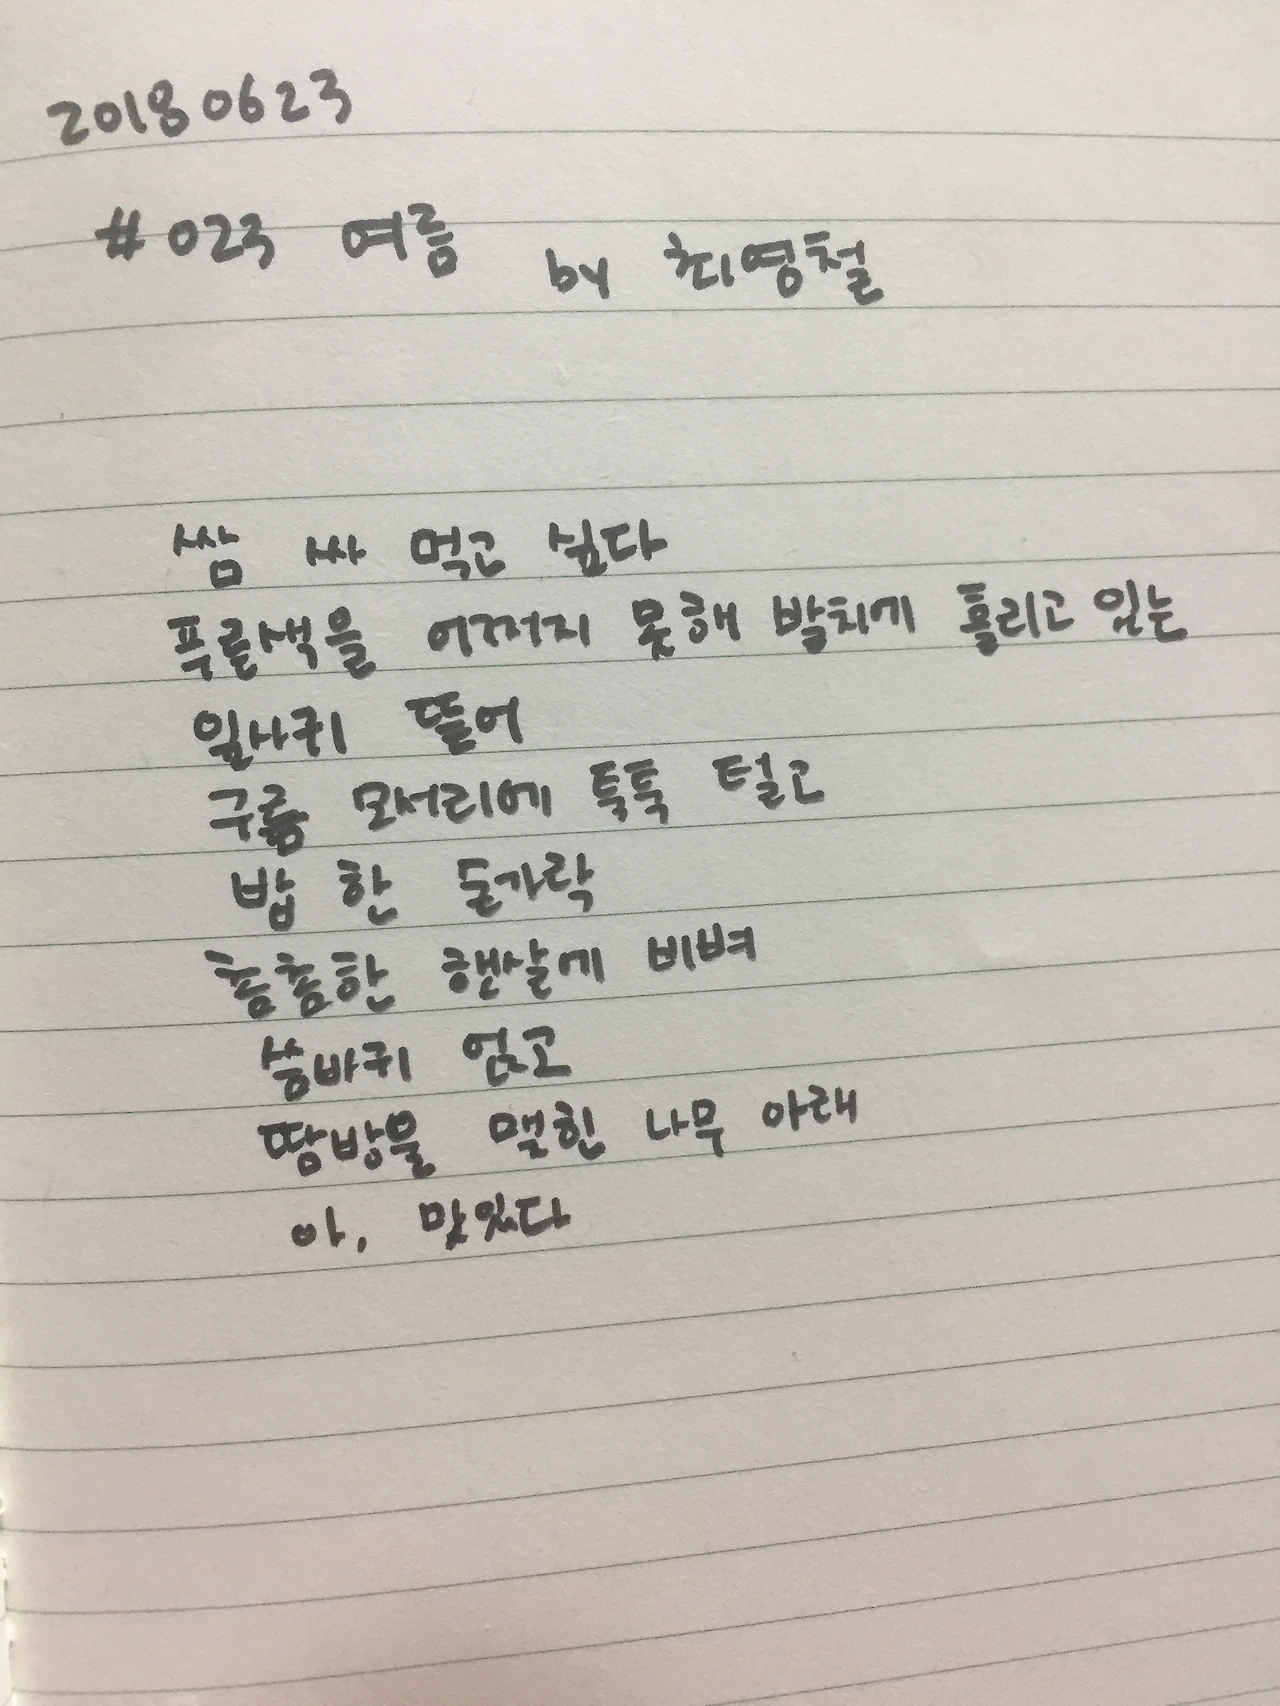 20180623
#023 여름 by 최영철
쌈 싸 먹고 싶다
푸른색을 어쩌지 못해 발치에 흘리고 있는
잎사귀 뜯어
구름 모서리에 툭툭 털고
밥 한 숟가락
촘촘한 햇살에 비벼
씀바귀 얹고
땀방울 맺힌 나무 아래
아, 맛있다